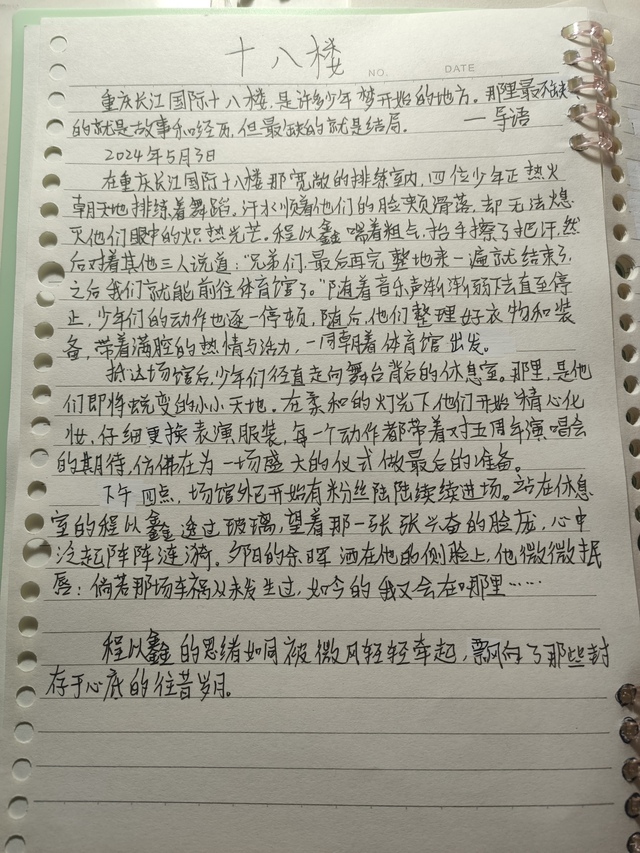 十八楼
NO.
DATE
重庆长江国际十八楼,是许多少年梦开始的地方。那里最不缺
的就是故事和经历,但最缺的就是结局。 —导语
2024年5月3日
在重庆长江国际十八楼那宽敞的排练室内,四位少年正热火
朝天地排练着舞蹈。汗水顺着他们的脸颊滑落,却无法熄
灭他们眼中的炽热光芒。程以鑫喘着粗气,抬手擦了把汗,然
后对着其他三人说道:“兄弟们,最后再完整地来一遍就结束了,
之后我们就能前往体育馆了。”随着音乐声渐渐弱下去直至停
止,少年们的动作也逐一停顿,随后,他们整理好衣物和装
备,带着满腔的热情与活力,一同朝着体育馆出发。
抵达场馆后,少年们径直走向舞台背后的休息室。那里,是他
们即将蜕变的小小天地。在柔和的灯光下,他们开始精心化
妆,仔细更换表演服装,每一个动作都带着对五周年演唱会
的期待,仿佛在为一场盛大的仪式做最后的准备。
下午四点,场馆外已开始有粉丝陆陆续续进场。站在休息
室的程以鑫透过玻璃,望着那一张张兴奋的脸庞,心中
泛起阵阵涟漪。夕阳的余晖洒在他的侧脸上,他微微抿
唇:倘若那场车祸从未发生过,如今的我又会在哪里……
程以鑫的思绪如同被微风轻轻牵起,飘向了那些封
存于心底的往昔岁月。